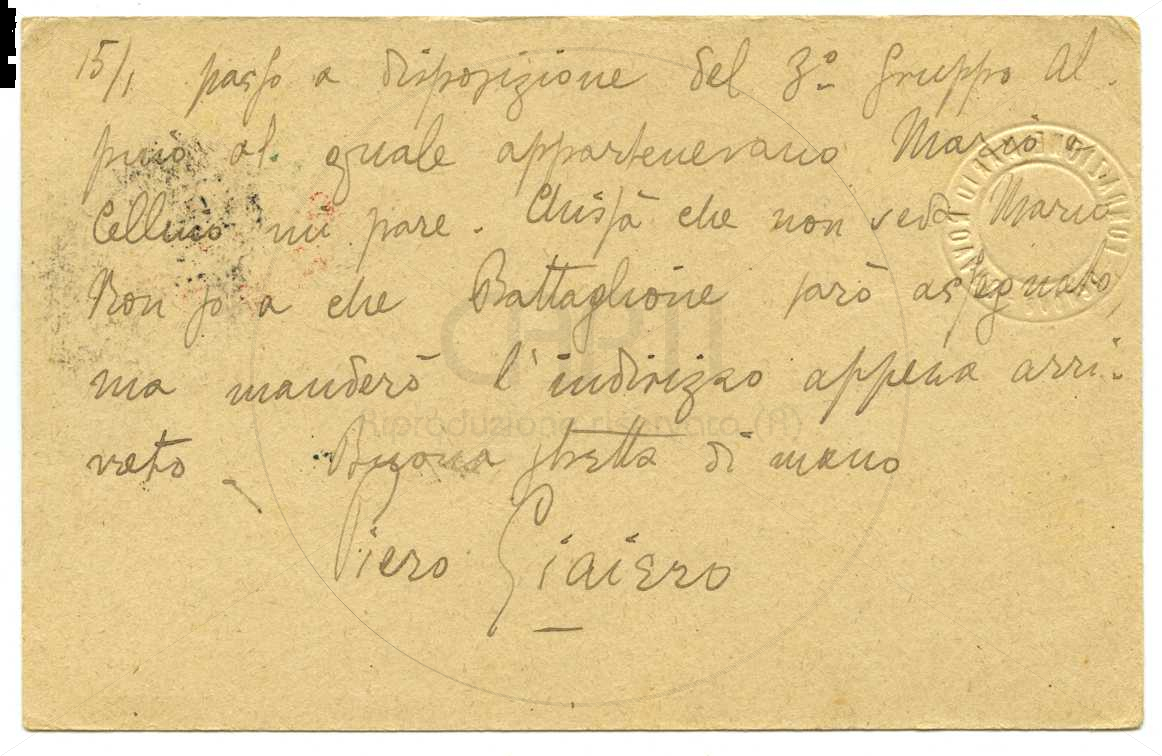 15/1 passo a disposizione del 3º Gruppo Al-
pino al quale appartenevano Mario e
Cellino mi pare. Chissà che non veda Mario
Non so a che Battaglione sarò assegnato,
ma manderò l'indirizzo appena arri-
vato. Buona stretta di mano
Piero Giaiero
Riproduzione riservata (A)